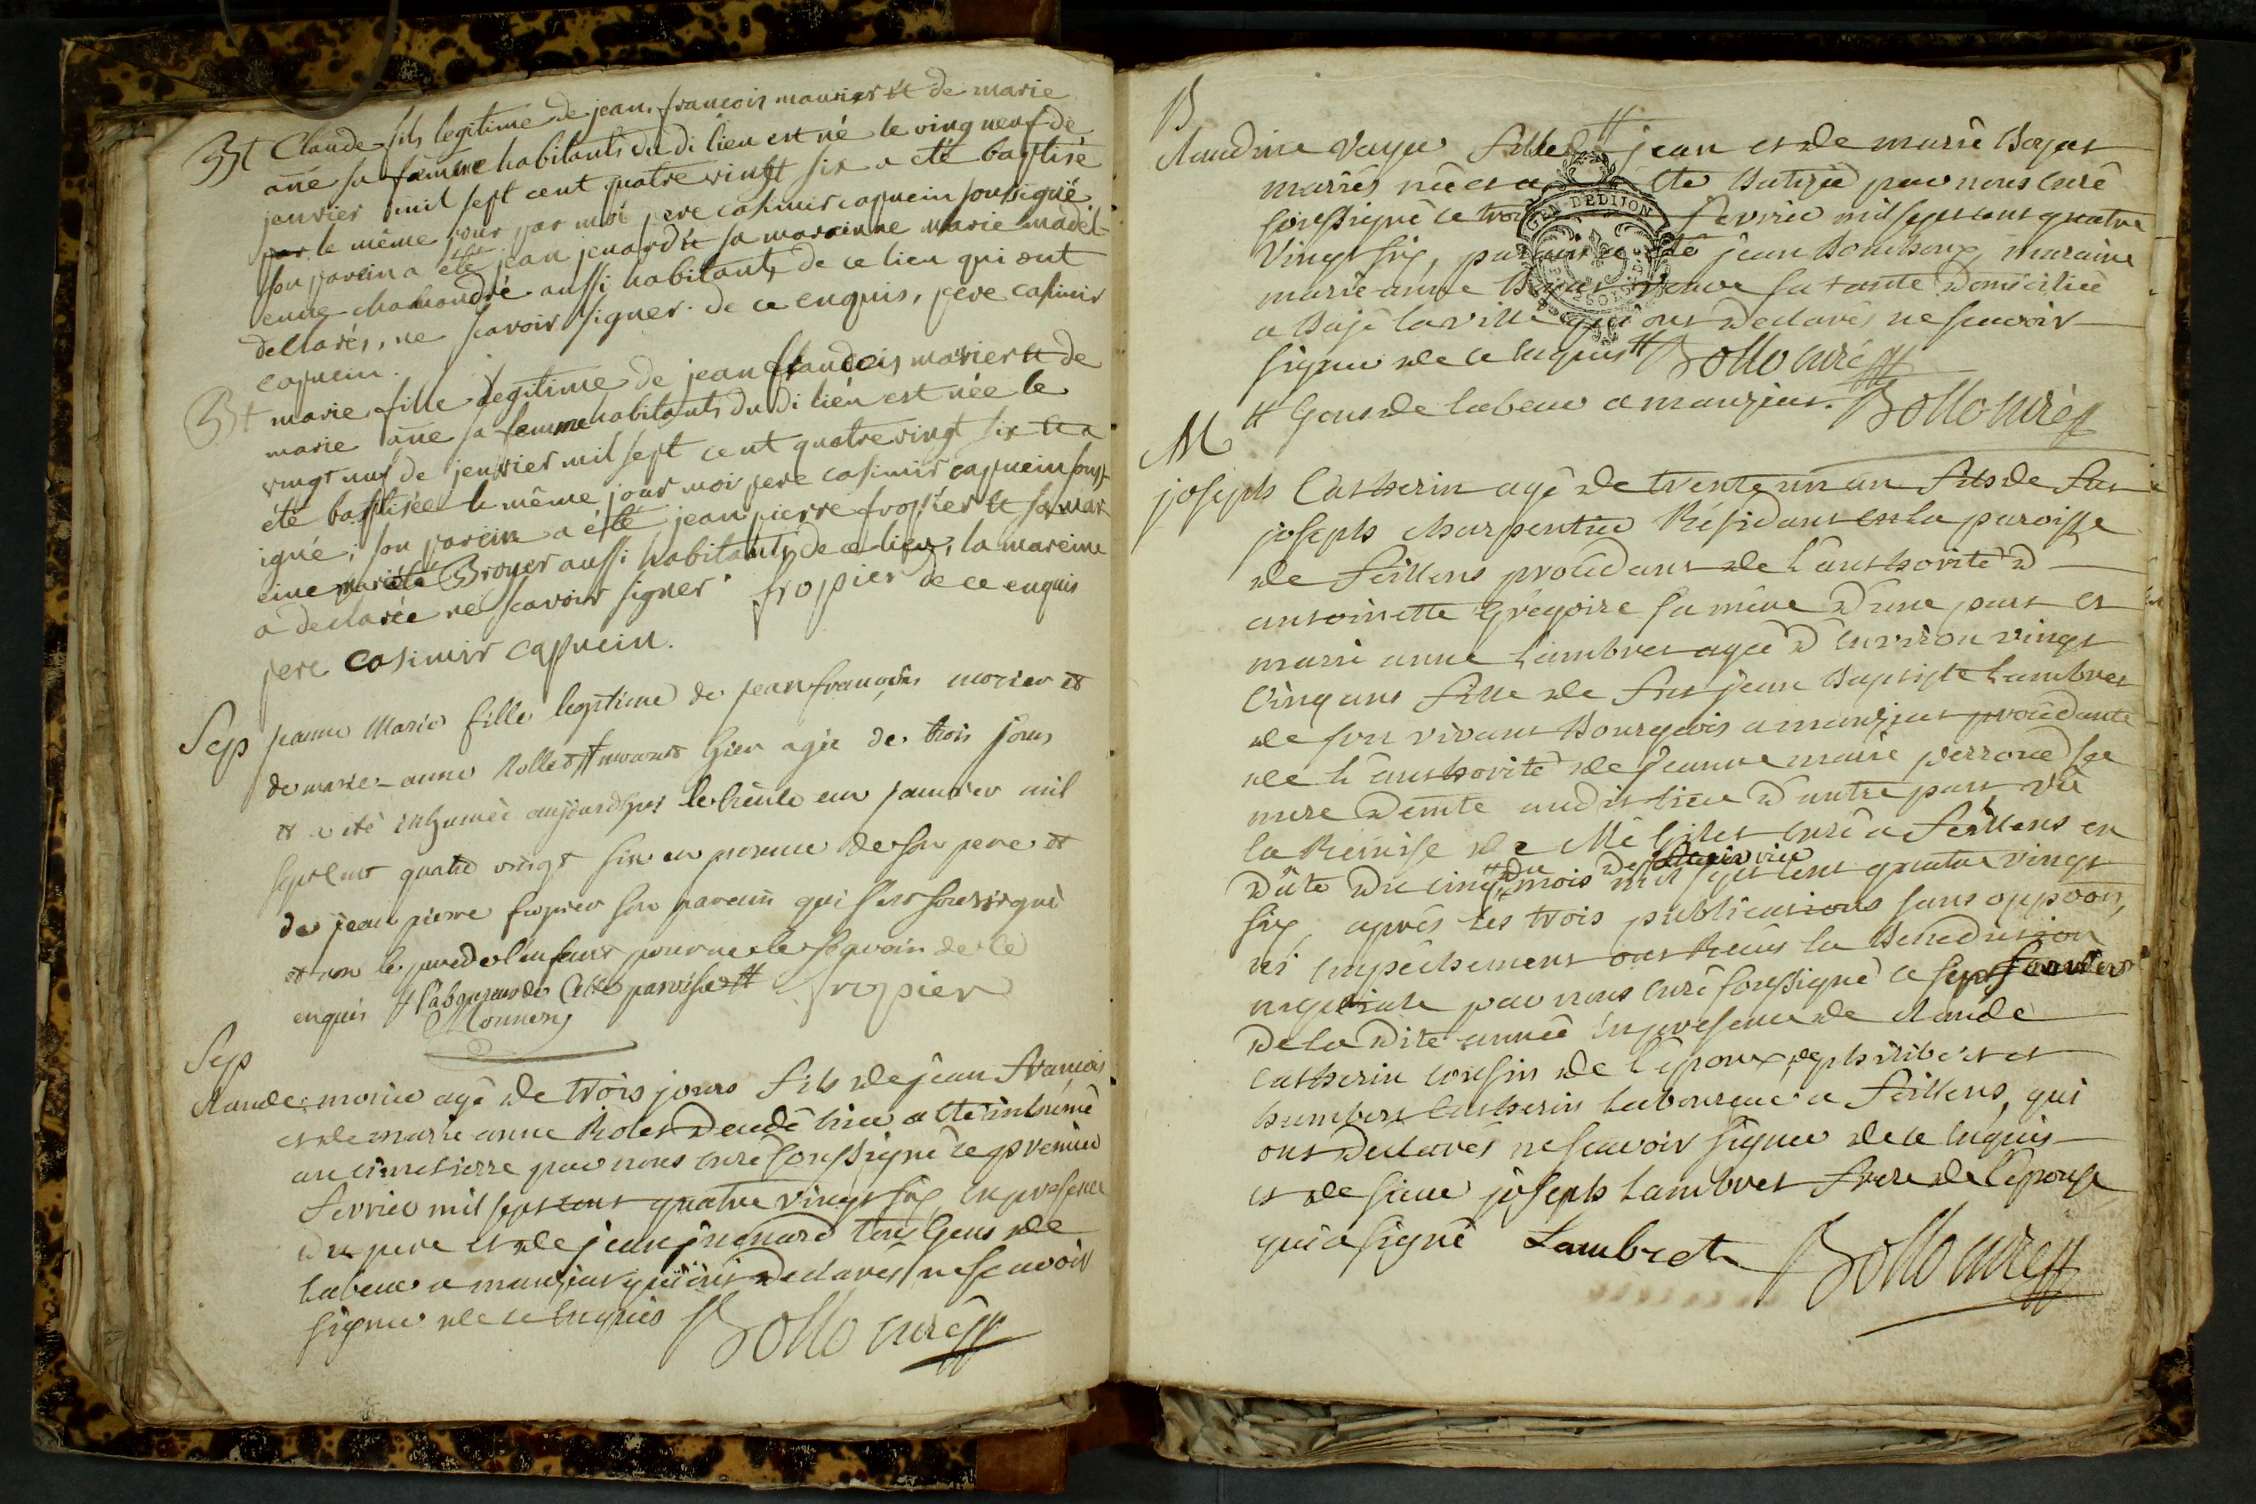 Bt Claude fils legitime de jean francois maurier et de marie
ane sa famme habitants du di lieu est né le ving neuf de
janvier mil sept cent quatre vintt six a été baptisé
par le même jour par moi pere casimir capucin soussigué
son parein a été jean jenard et sa mareinne marie madel-
enne chamandré aussi habitants de ce lieu qui ont
declarés, ne scavoir signer. de ce enquis, pere casimir
capucin.
Bt marie fille legitime de jean francois marier et de
marie ane sa femme habitants du di lieu est née le
vingt nuf de jenvier mil sept cent quatre vingt six et a
été baptisée le même jour moi pere casimir capucin souss-
igné, son parein a été jean pierre fropier et sa mar
eine Broyer aussi habitants de ce lieu, la mareine
a declarée ne scavoir signer. fropier de ce enquis
pere casimir capucin.
Sep jeanne Marie fille legitime de jean françois morier et
de marie-anne Rollet # mourut hier agée de trois jours
et a été inhumée aujourdhui le trente un janvier mil
sept cent quatre vingt six en presence de son pere et
de jean pierre fropier son parain qui s'est soussigné
et non le pere de l'enfant pour ne le sçavoir de ce
enquis # laboureurs de cette paroisse # fropier
Monnery
Sep
Claude morier agé de trois jours fils de jean François
et de marie anne Rolet dudê lieu a été inhumé
au cimetierre par nous curé soussigné ce premier
fevrier mil sept cent quatre vingt six, en presence
du pere et de jean jnenard tous gens de
labeur a manziat qui ont declarés ne scavoir
signer de ce enquis Bollo curé
B
Claudine Vayer fille # jean et de marie Boyat
mariés née et a été batizée par nous curé
soussigné ce trois fevrier mil sept cent quatre
vingt six, parain a été jean Bombourg, maraine
marie anne Boyat veuve sa tante domiciliée
a Bagé la ville qui ont declarés ne scavoir
signer de ce enquis # Bollo curé
# gens de labeur a manziat. Bollo curé
GEN. DE DIJON
M
joseph Catherin agé de trente un an fils de fut
joseph charpentier Résidant en la paroisse
de feillens procedant de l'authorité d
antoinette Grégoire sa mére d'une part et
marie anne Lambret agée d'environ vingt
Cinq ans fille de fut jean Baptiste Lambret
de son vivant Bourgeois a manziat procedante
de l'authorité de jeanne marie perroud sa
mere demte audit lieu d'autre part vû
la Remise de Me Gilet curé a feillens en
dâte du cinq du mois mil sept cent quatre vingt
six, aprés les trois publications sans oppoon,
ni empêchement ont Reçus la Benediction
nuptiale par nous curé soussigné ce sept fevrier
de la dite année en presence de Claude
Catherin cousin de l'epoux, de philibert et
humbert Catherin laboureur a feillens, qui
ont declarés ne scavoir signer de ce enquis
et de sieur joseph Lambret frere de l'épouse
qui a signé Lambret Bollo curé